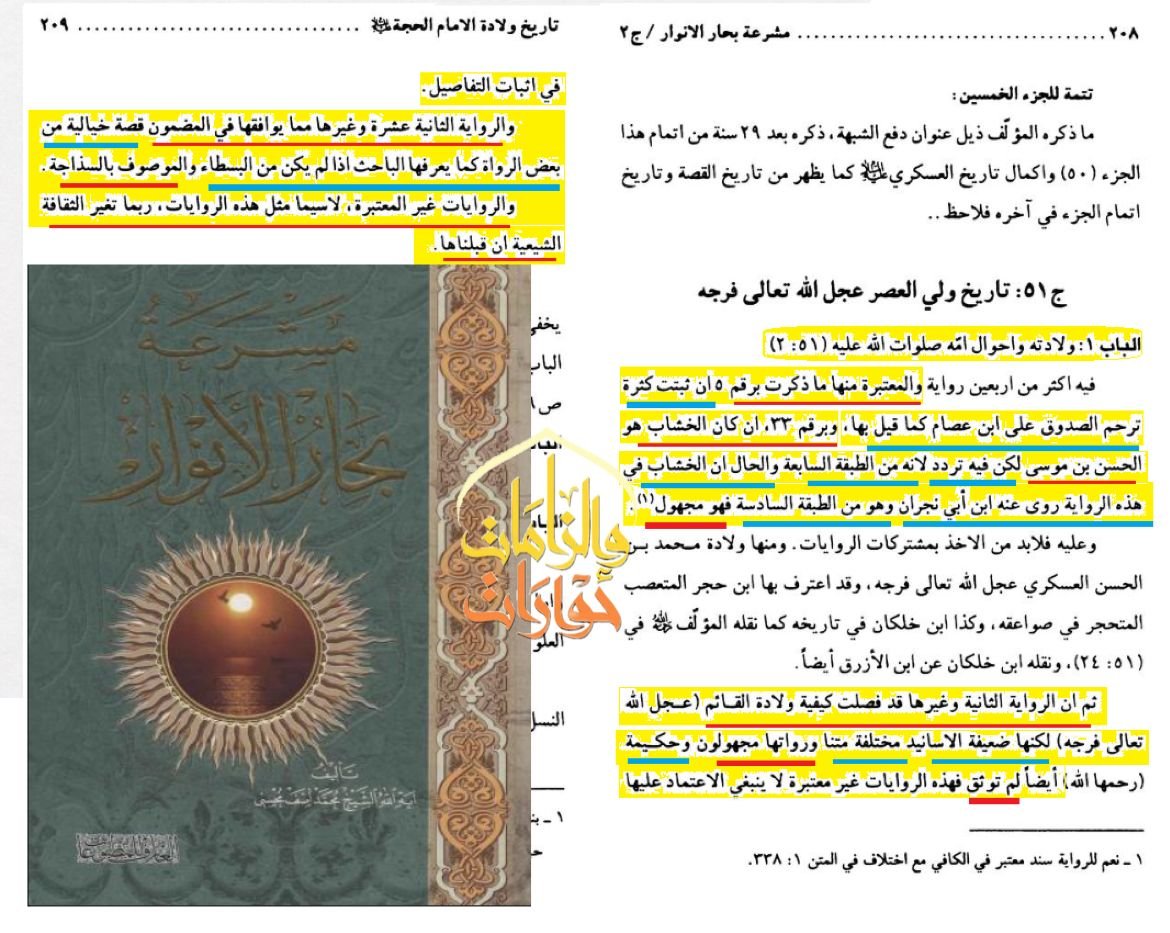 ٢٠٨ .................................... مشرعة بحار الانوار / ج٢
تتمة للجزء الخمسين:
ما ذكره المؤلّف ذيل عنوان دفع الشبهة، ذكره بعد ٢٩ سنة من اتمام هذا
الجزء (٥٠) واكمال تاريخ العسكري كما يظهر من تاريخ القصة وتاريخ
اتمام الجزء في آخره فلاحظ..
ج٥١: تاريخ ولي العصر عجل الله تعالى فرجه
الباب ١: ولادته واحوال امّه صلوات الله عليه (٥١: ٢)
فيه اكثر من اربعين رواية والمعتبرة منها ما ذكرت برقم ٥ ان ثبتت كثرة
ترحم الصدوق على ابن عصام كما قيل بها، وبرقم ٣٣، ان كان الخشاب هو
الحسن بن موسى لكن فيه تردد لانه من الطبقة السابعة والحال ان الخشاب في
هذه الرواية روى عنه ابن أبي نجران وهو من الطبقة السادسة فهو مجهول(١).
وعليه فلابد من الاخذ بمشتركات الروايات. ومنها ولادة محمد بن
الحسن العسكري عجل الله تعالى فرجه، وقد اعترف بها ابن حجر المتعصب
المتحجر في صواعقه، وكذا ابن خلكان في تاريخه كما نقله المؤلّف في
(٥١: ٢٤)، ونقله ابن خلكان عن ابن الأزرق أيضاً.
ثم ان الرواية الثانية وغيرها قد فصلت كيفية ولادة القائم (عجل الله
تعالى فرجه) لكنها ضعيفة الاسانيد مختلفة متنا ورواتها مجهولون وحكيمة
(رحمها الله) أيضاً لم توثق فهذه الروايات غير معتبرة لا ينبغي الاعتماد عليها
١ ـ نعم للرواية سند معتبر في الكافي مع اختلاف في المتن ١: ٣٣٨.
تاريخ ولادة الامام الحجة .................................... ٢٠٩
في اثبات التفاصيل.
والرواية الثانية عشرة وغيرها مما يوافقها في المضمون قصة خيالية من
بعض الرواة كما يعرفها الباحث اذا لم يكن من البسطاء والموصوف بالسذاجة.
والروايات غير المعتبرة، لاسيما مثل هذه الروايات، ربما تغير الثقافة
الشيعية ان قبلناها.
مشرعة
بحار الأنوار
تأليف
آية الله الشيخ محمد آصف محسني
والزامات
حوارات
يخفى
الباب
العلو
النسل
١ ـ